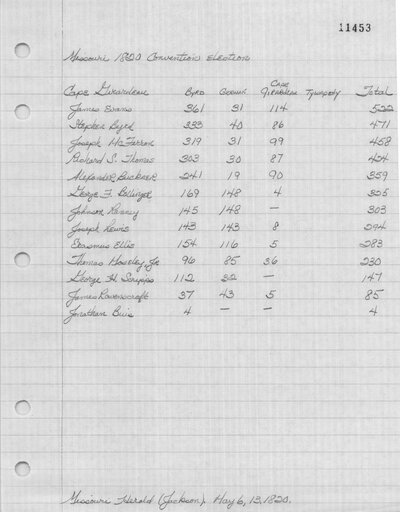 11453
Missouri 1820 Convention Election
Cape Girardeau Byrd German Cape Girardeau Tywapity Total
James Evans 361 31 114 522
Stephen Byrd 333 40 86 471
Joseph McFerron 319 31 99 458
Richard S. Thomas 303 30 87 424
Alexander Buckner 241 19 90 359
George F. Bollinger 169 148 4 325
Johnson Ranney 145 148 — 303
Joseph Lewis 143 143 8 294
Erasmus Ellis 154 116 5 283
Thomas Hoseley, Jr 96 85 36 230
George H. Scripps 112 32 — 147
James Ravenscroft 37 43 5 85
Jonathan Buis 4 — — 4
Missouri Herald (Jackson), May 6, 13, 1820.